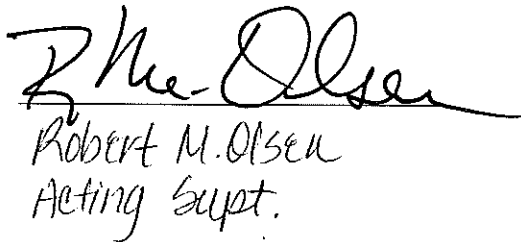 R M Olsen
Robert M. Olsen
Acting Supt.